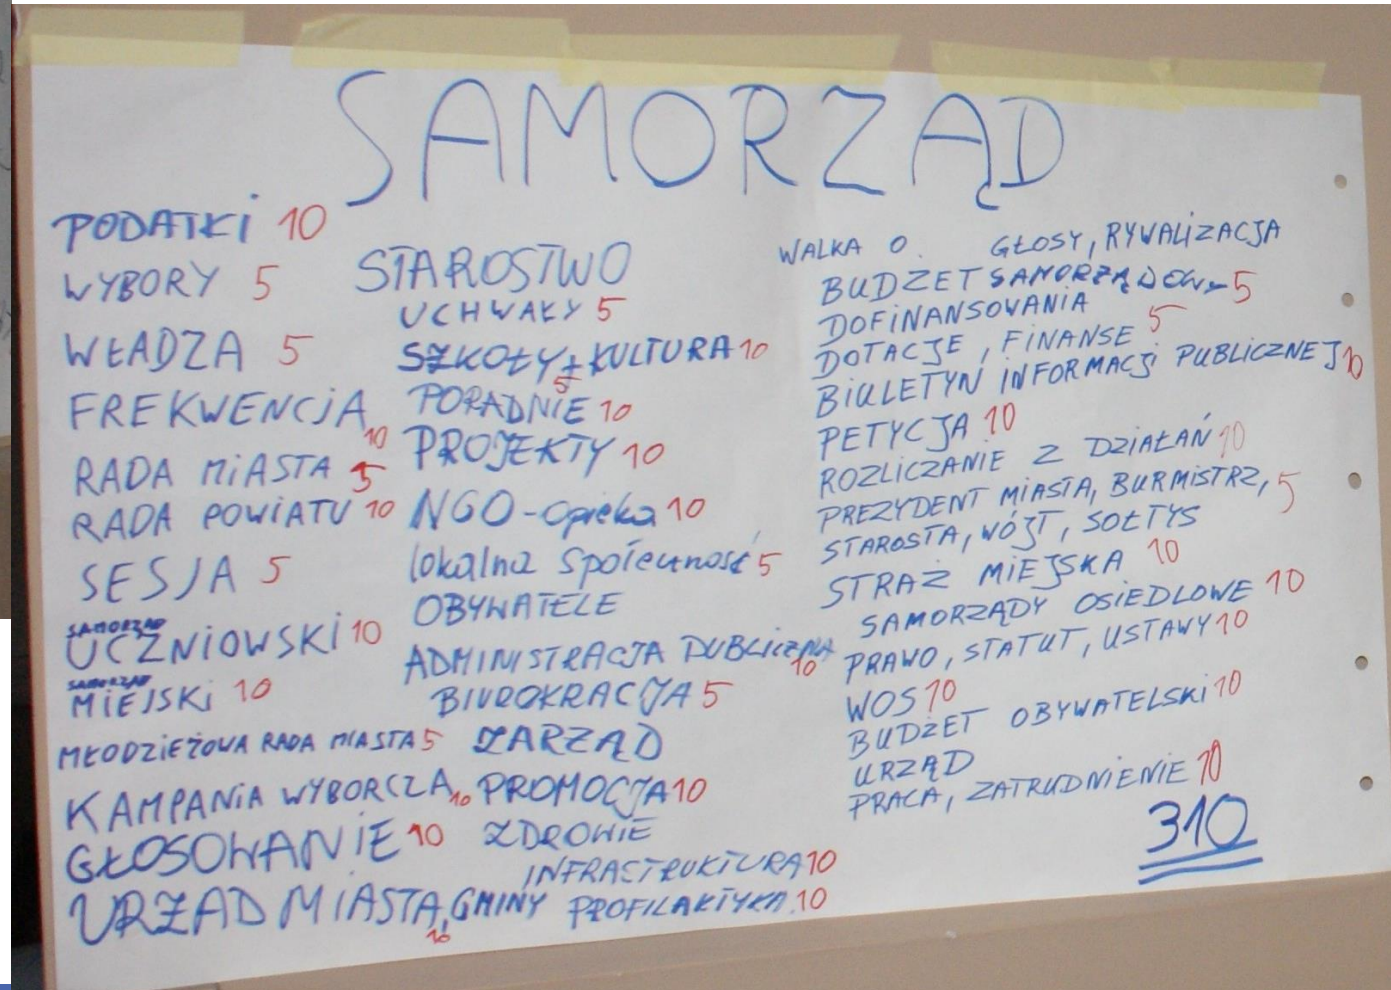 SAMORZĄD
PODATKI 10
WYBORY 5
WŁADZA 5
FREKWENCJA 10
RADA MIASTA 5
RADA POWIATU 10
SESJA 5
SAMORZĄD
UCZNIOWSKI 10
SAMORZĄD
MIEJSKI 10
MŁODZIEŻOWA RADA MIASTA 5
KAMPANIA WYBORCZA 10
GŁOSOWANIE 10
URZĄD MIASTA, GMINY 10
STAROSTWO
UCHWAŁY 5
SZKOŁY + KULTURA 10
5
PORADNIE 10
PROJEKTY 10
NGO - opieka 10
lokalna społeczność 5
OBYWATELE
ADMINISTRACJA PUBLICZNA 10
BIUROKRACJA 5
ZARZĄD
PROMOCJA 10
ZDROWIE
INFRASTRUKTURA 10
PROFILAKTYKA 10
WALKA O GŁOSY, RYWALIZACJA
BUDŻET SAMORZĄDOWY 5
DOFINANSOWANIA
DOTACJE, FINANSE 5
BIULETYN INFORMACJI PUBLICZNEJ 10
PETYCJA 10
ROZLICZANIE Z DZIAŁAŃ 10
PREZYDENT MIASTA, BURMISTRZ, 5
STAROSTA, WÓJT, SOŁTYS
STRAŻ MIEJSKA 10
SAMORZĄDY OSIEDLOWE 10
PRAWO, STATUT, USTAWY 10
WOS 10
BUDŻET OBYWATELSKI 10
URZĄD
PRACA, ZATRUDNIENIE 10
310